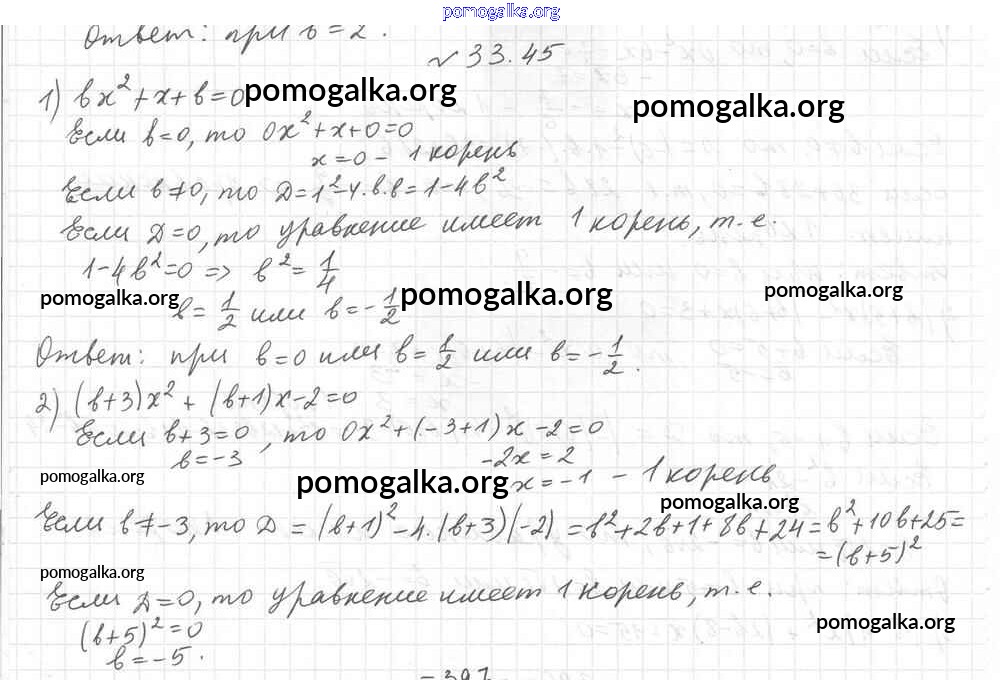 pomogalka.org
Ответ: при в = 2.
№33.45
1) вx² + x + в = 0 pomogalka.org
pomogalka.org
Если в = 0, то 0x² + x + 0 = 0
x = 0 – 1 корень
Если в ≠ 0, то Д = 1² – 4·в·в = 1 – 4в²
Если Д = 0, то уравнение имеет 1 корень, т.е.
1 – 4в² = 0 => в² = 1/4
pomogalka.org
pomogalka.org
pomogalka.org
в = 1/2 или в = – 1/2
Ответ: при в = 0 или в = 1/2 или в = – 1/2.
2) (в+3)x² + (в+1)x – 2 = 0
Если в + 3 = 0, то 0x² + (–3+1)x – 2 = 0
в = –3
–2x = 2
pomogalka.org
pomogalka.org
x = –1 – 1 корень
pomogalka.org
Если в ≠ –3, то Д = (в+1)² – 4·(в+3)(–2) = в² + 2в + 1 + 8в + 24 = в² + 10в + 25 =
= (в+5)²
pomogalka.org
Если Д = 0, то уравнение имеет 1 корень, т.е.
(в+5)² = 0
pomogalka.org
в = –5.